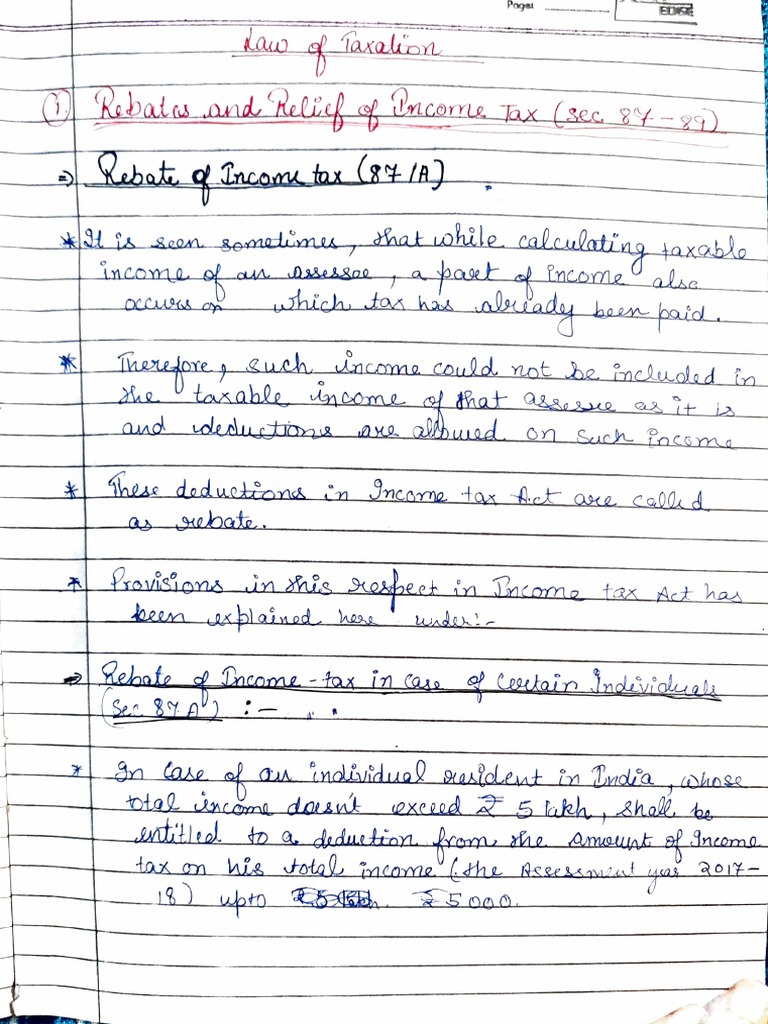 Page:
EDGE
Law of Taxation
① Rebates and Relief of Income Tax (Sec 87-89)
⇒ Rebate of Income tax (87/A)
* It is seen sometimes, that while calculating taxable
income of an assessee, a part of income also
occurs on which tax has already been paid.
* Therefore, such income could not be included in
the taxable income of that assessee as it is
and deductions are allowed on such income
* These deductions in Income tax Act are called
as rebate.
* Provisions in this respect in Income tax Act has
been explained here under:-
→ Rebate of Income-tax in case of certain Individuals
(Sec 87A) :-
* In case of an individual resident in India, whose
total income doesn't exceed ₹ 5 lakh, shall be
entitled to a deduction from the amount of Income
tax on his total income (the Assessment year 2017-
18) upto ₹5000.